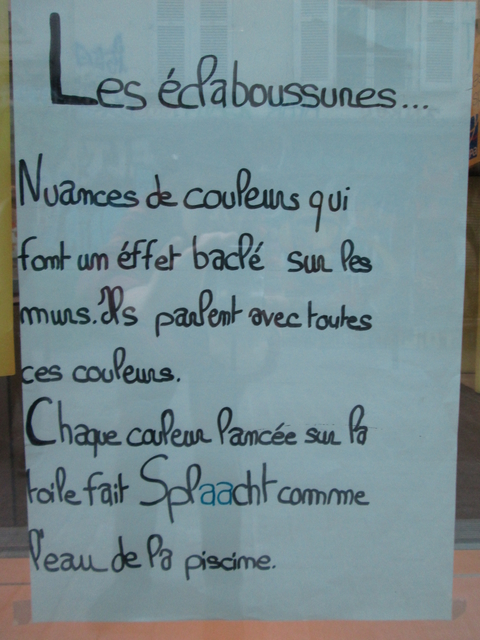 Les éclaboussures...
Nuances de couleurs qui
font un éffet baclé sur les
murs. Ils parlent avec toutes
ces couleurs.
Chaque couleur lancée sur la
toile fait Splaacht comme
l'eau de la piscine.